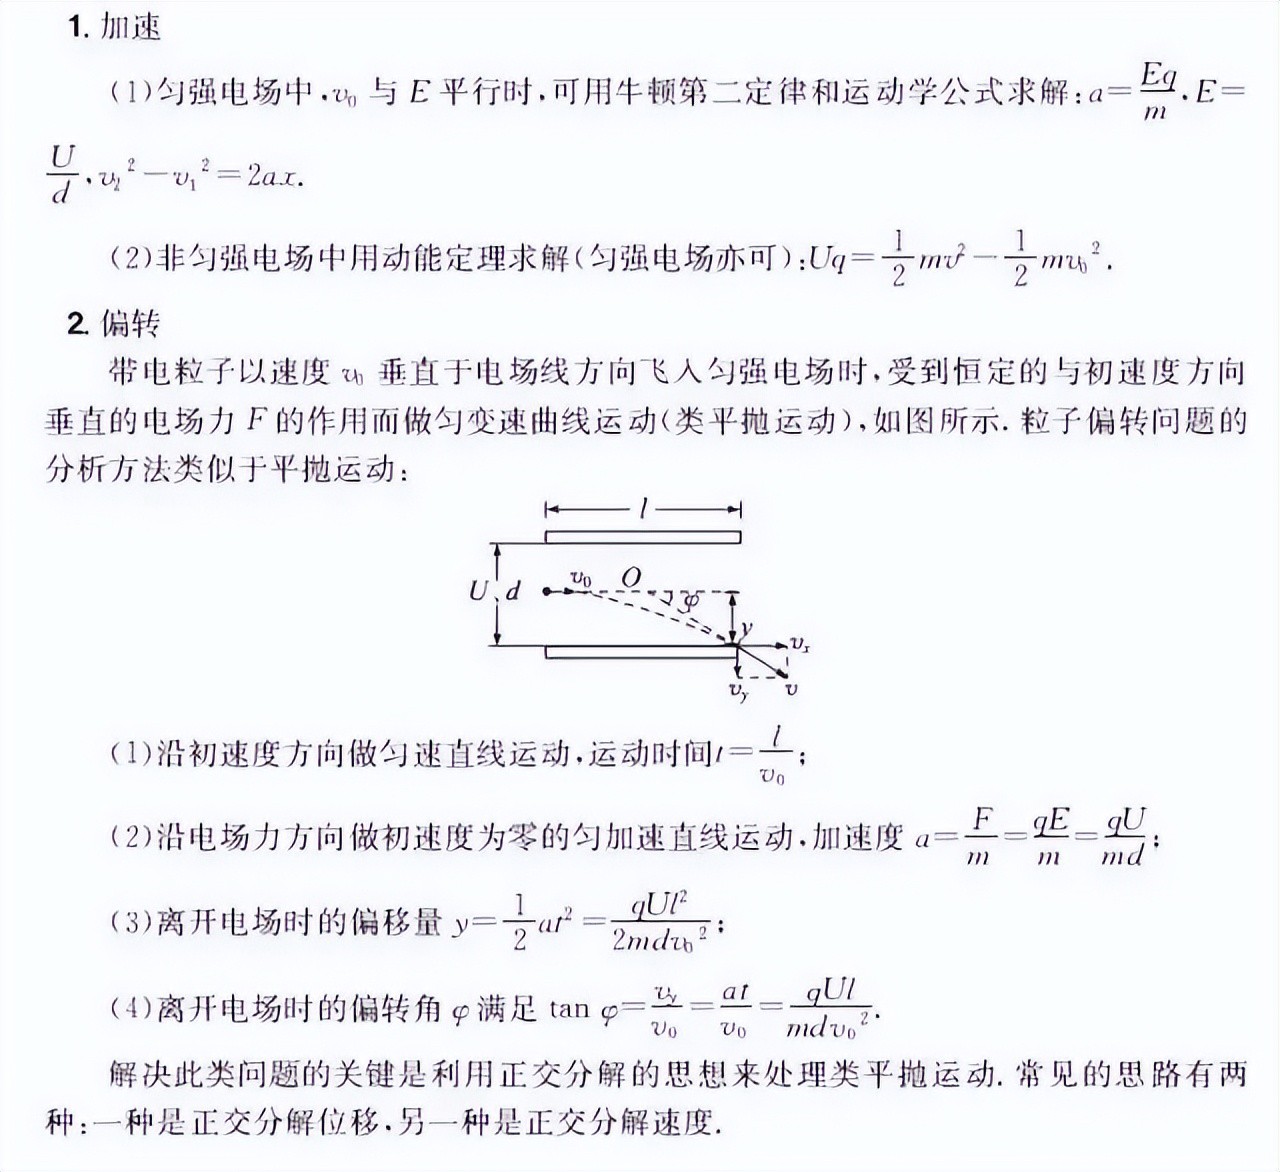 1. 加速
(1)匀强电场中,v₀ 与 E 平行时,可用牛顿第二定律和运动学公式求解:a=Eq/m,E=
U/d,v₂²-v₁²=2ax.
(2)非匀强电场中用动能定理求解(匀强电场亦可):Uq=1/2mv²-1/2mv₀².
2. 偏转
带电粒子以速度 v₀ 垂直于电场线方向飞入匀强电场时,受到恒定的与初速度方向
垂直的电场力 F 的作用而做匀变速曲线运动(类平抛运动),如图所示.粒子偏转问题的
分析方法类似于平抛运动:
l
U、d v₀ O φ
y vₓ
v_y v
(1)沿初速度方向做匀速直线运动,运动时间t=l/v₀;
(2)沿电场力方向做初速度为零的匀加速直线运动,加速度 a=F/m=qE/m=qU/md;
(3)离开电场时的偏移量 y=1/2at²=qUl²/2mdv₀²;
(4)离开电场时的偏转角 φ 满足 tan φ=v_y/v₀=at/v₀=qUl/mdv₀².
解决此类问题的关键是利用正交分解的思想来处理类平抛运动.常见的思路有两
种:一种是正交分解位移,另一种是正交分解速度.